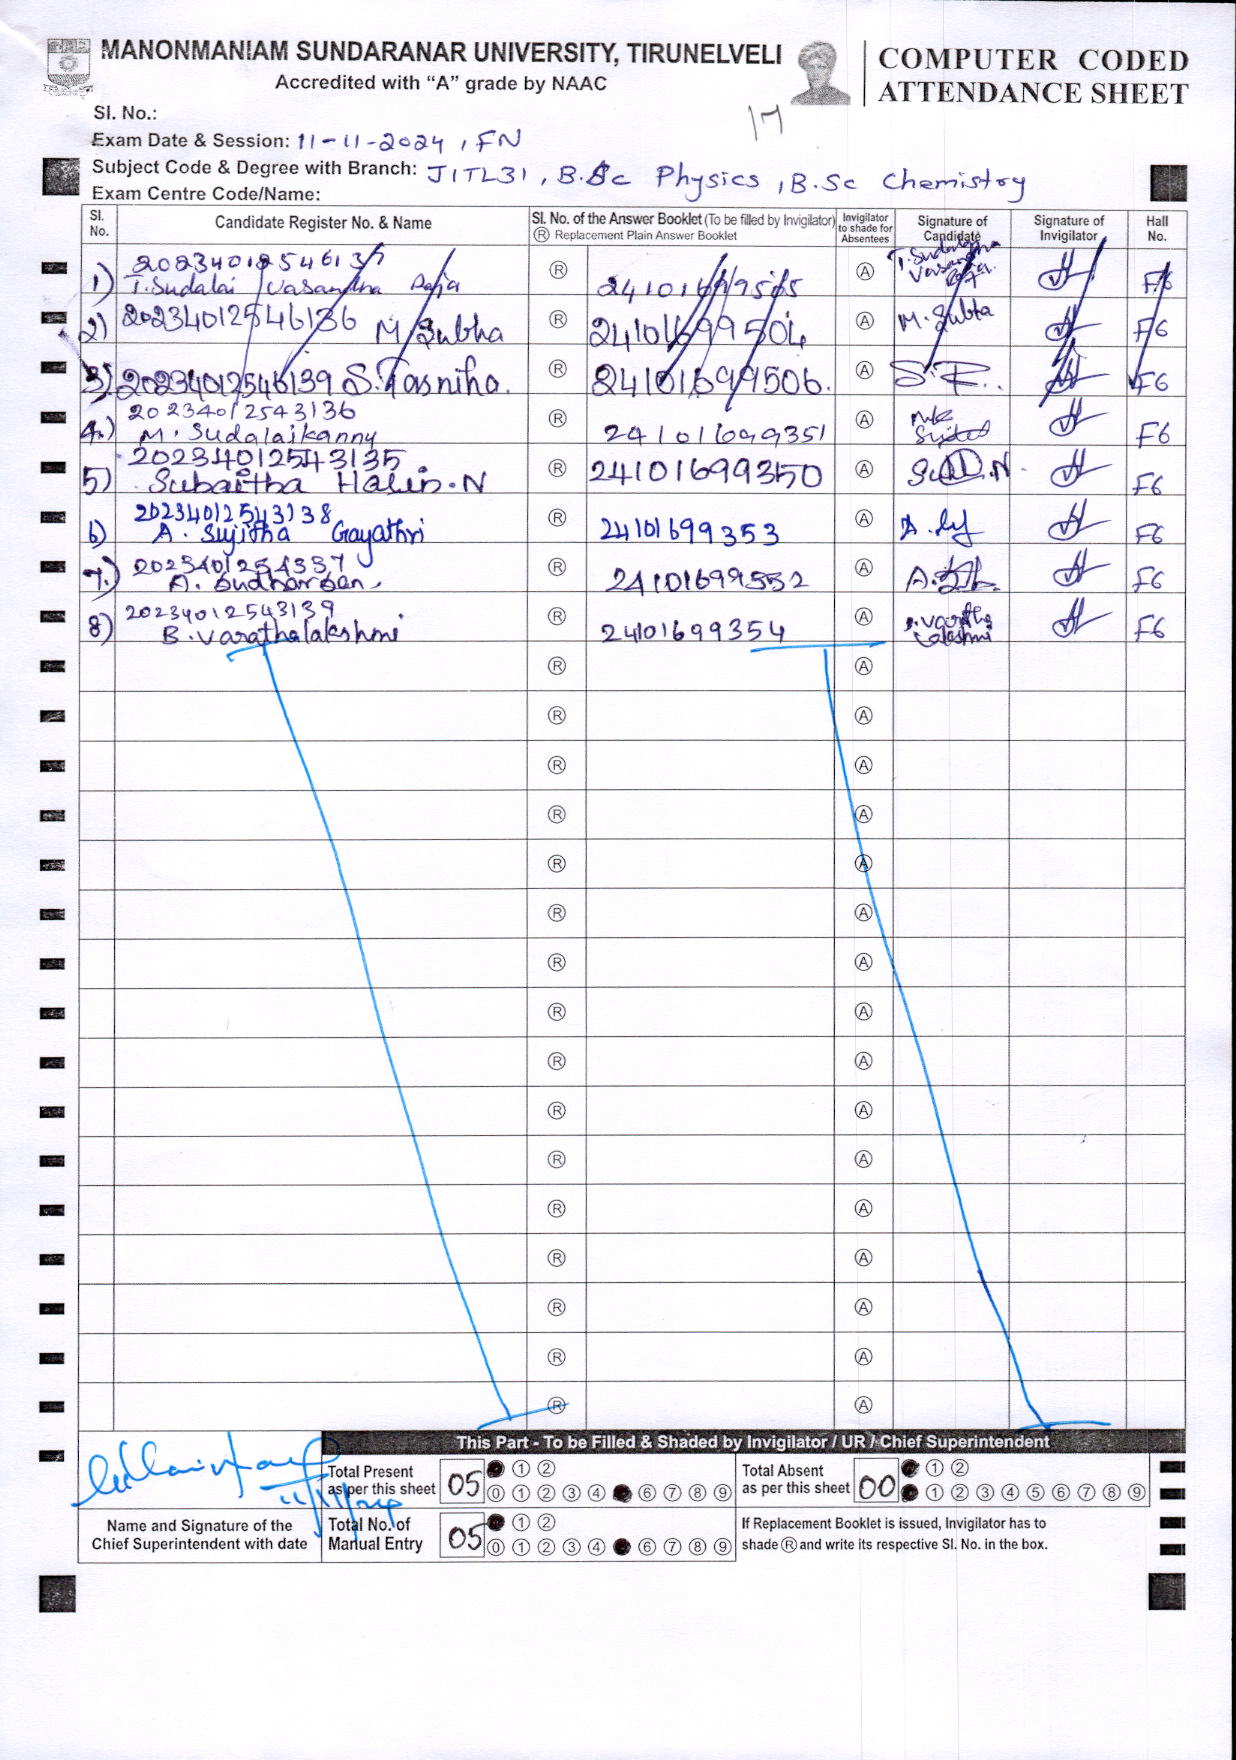 MANONMANIAM SUNDARANAR UNIVERSITY, TIRUNELVELI
Accredited with “A” grade by NAAC
COMPUTER CODED
ATTENDANCE SHEET
17
Sl. No.:
Exam Date & Session: 11-11-2024, FN
Subject Code & Degree with Branch: JITL31, B.Sc Physics, B.Sc Chemistry
Exam Centre Code/Name:
Sl. No. Candidate Register No. & Name Sl. No. of the Answer Booklet (To be filled by Invigilator) Ⓡ Replacement Plain Answer Booklet Invigilator to shade for Absentees Signature of Candidate Signature of Invigilator Hall No.
1) 20234012546137 Ⓡ 24101699505 Ⓐ T. Sudalai Vasantha Raja F6
T. Sudalai Vasantha Raja
2) 20234012546136 M. Subha Ⓡ 24101699504 Ⓐ M. Subha F6
3) 20234012546139 S. Tasniha. Ⓡ 24101699506. Ⓐ F6
4.) 20234012543136 Ⓡ 24101699351 Ⓐ F6
M. Sudalaikannu
5) 20234012543135. Ⓡ 24101699350 Ⓐ F6
Subaitha Halin.N
6) 20234012543138 Ⓡ 24101699353 Ⓐ F6
A. Sujitha Gayathri
7.) 20234012543337 Ⓡ 24101699352 Ⓐ F6
A. Sudharsan
8) 20234012543139 Ⓡ 24101699354 Ⓐ B. Varatha lakshmi F6
B. Varathalakshmi
Ⓡ Ⓐ
Ⓡ Ⓐ
Ⓡ Ⓐ
Ⓡ Ⓐ
Ⓡ Ⓐ
Ⓡ Ⓐ
Ⓡ Ⓐ
Ⓡ Ⓐ
Ⓡ Ⓐ
Ⓡ Ⓐ
Ⓡ Ⓐ
Ⓡ Ⓐ
Ⓡ Ⓐ
Ⓡ Ⓐ
Ⓡ Ⓐ
Ⓡ Ⓐ
This Part - To be Filled & Shaded by Invigilator / UR / Chief Superintendent
11/11/2024
Total Present as per this sheet 05 ① ②
⓪ ① ② ③ ④ ⑥ ⑦ ⑧ ⑨
Total Absent as per this sheet 00 ① ②
① ② ③ ④ ⑤ ⑥ ⑦ ⑧ ⑨
Name and Signature of the Chief Superintendent with date
Total No. of Manual Entry 05 ① ②
⓪ ① ② ③ ④ ⑥ ⑦ ⑧ ⑨
If Replacement Booklet is issued, Invigilator has to
shade Ⓡ and write its respective Sl. No. in the box.